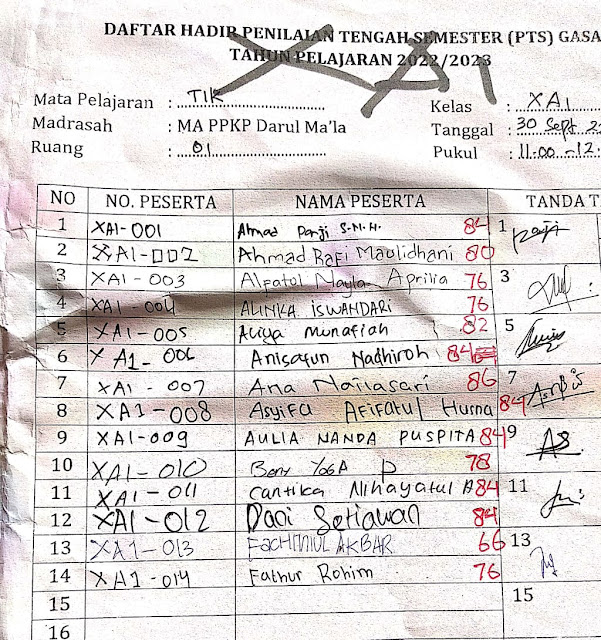 DAFTAR HADIR PENILAIAN TENGAH SEMESTER (PTS) GASA
TAHUN PELAJARAN 2022/2023
XA1
Mata Pelajaran : TIK
Kelas : XA1
Madrasah : MA PPKP Darul Ma'la
Tanggal : 30 Sept 2
Ruang : 01
Pukul : 11.00 - 12.
NO NO. PESERTA NAMA PESERTA TANDA T
1 XA1-001 Ahmad Panji S.M.H. 84 1 Panji
2 XA1-002 Ahmad Rafi Maulidhani 80
3 XA1-003 Alfatul Nayla Aprilia 76 3
4 XA1-004 ALINKA ISWANDARI 76
5 XA1-005 Aliya Munafiah 82 5
6 XA1-006 Anisatun Nadhiroh 84
7 XA1-007 Ana Nailasari 86 7
8 XA1-008 Asyifa Afifatul Husna 84
9 XA1-009 AULIA NANDA PUSPITA 84 9
10 XA1-010 Beny YOGA P 78
11 XA1-011 Cantika Nihayatul A 84 11
12 XA1-012 Dani Setiawan 84
13 XA1-013 FACHMIUL AKBAR 66 13
14 XA1-014 Fathur Rohim 76
15 15
16